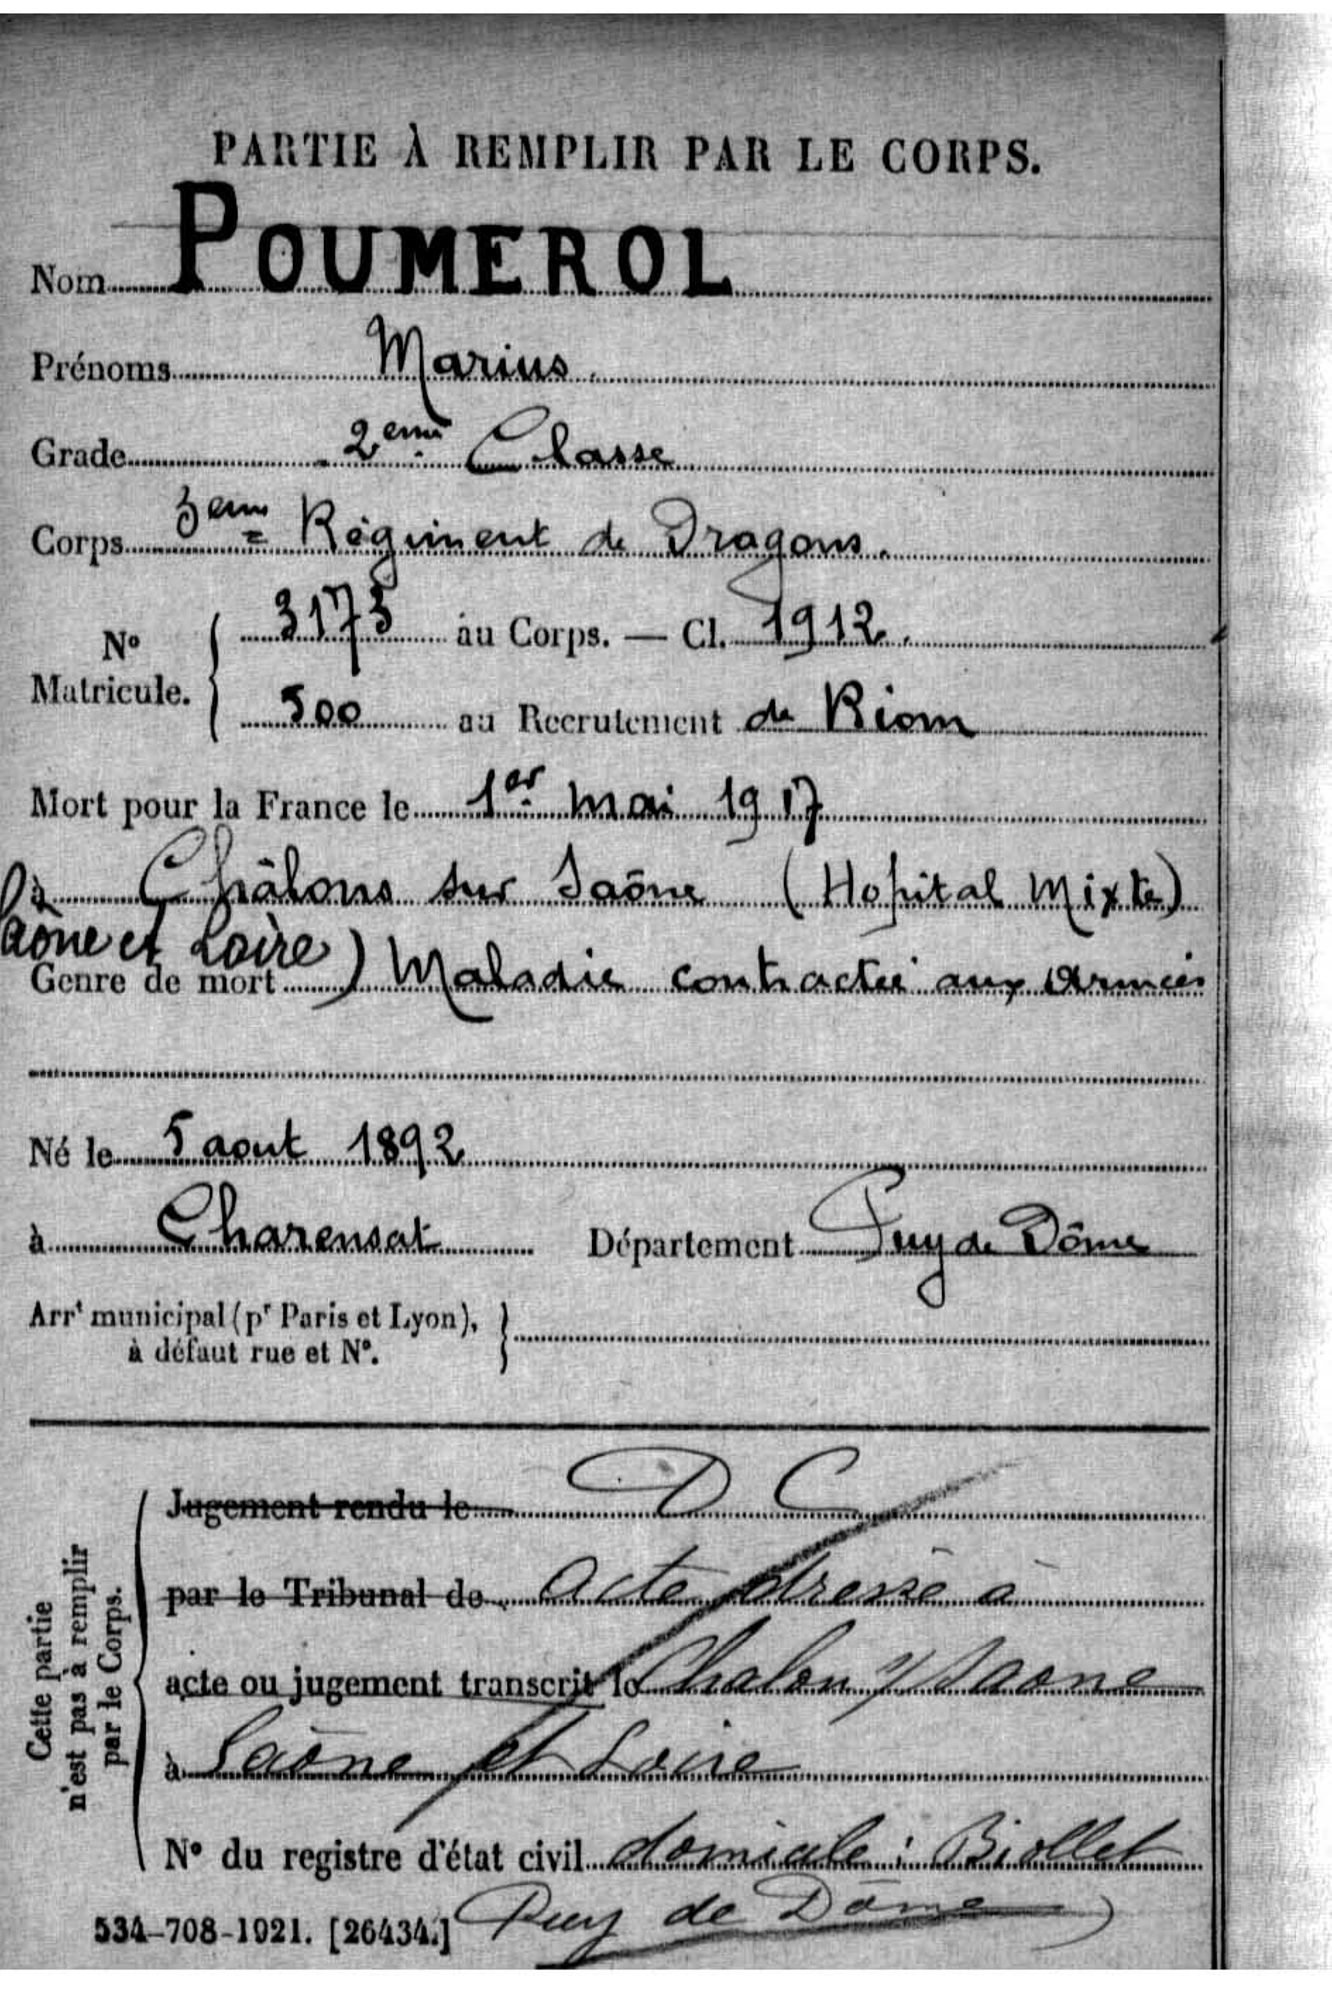 PARTIE À REMPLIR PAR LE CORPS.
Nom POUMEROL
Prénoms Marius.
Grade 2ème Classe
Corps 3ème Régiment de Dragons.
N° Matricule. 3173 au Corps. — Cl. 1912.
500 au Recrutement de Riom
Mort pour la France le 1er mai 1917
à Châlons sur Saône (Hopital Mixte)
Saône et Loire)
Genre de mort Maladie contractée aux Armées
Né le 5 aout 1892
à Charensat Département Puy de Dôme
Arrt municipal (pr Paris et Lyon),
à défaut rue et N°.
Cette partie
n'est pas à remplir
par le Corps.
Jugement rendu le D C
par le Tribunal de acte dressé à
acte ou jugement transcrit le Chalon s/ Saone
à Saône et Loire
N° du registre d'état civil domicile : Biollet
534-708-1921. [26434.] Puy de Dôme)